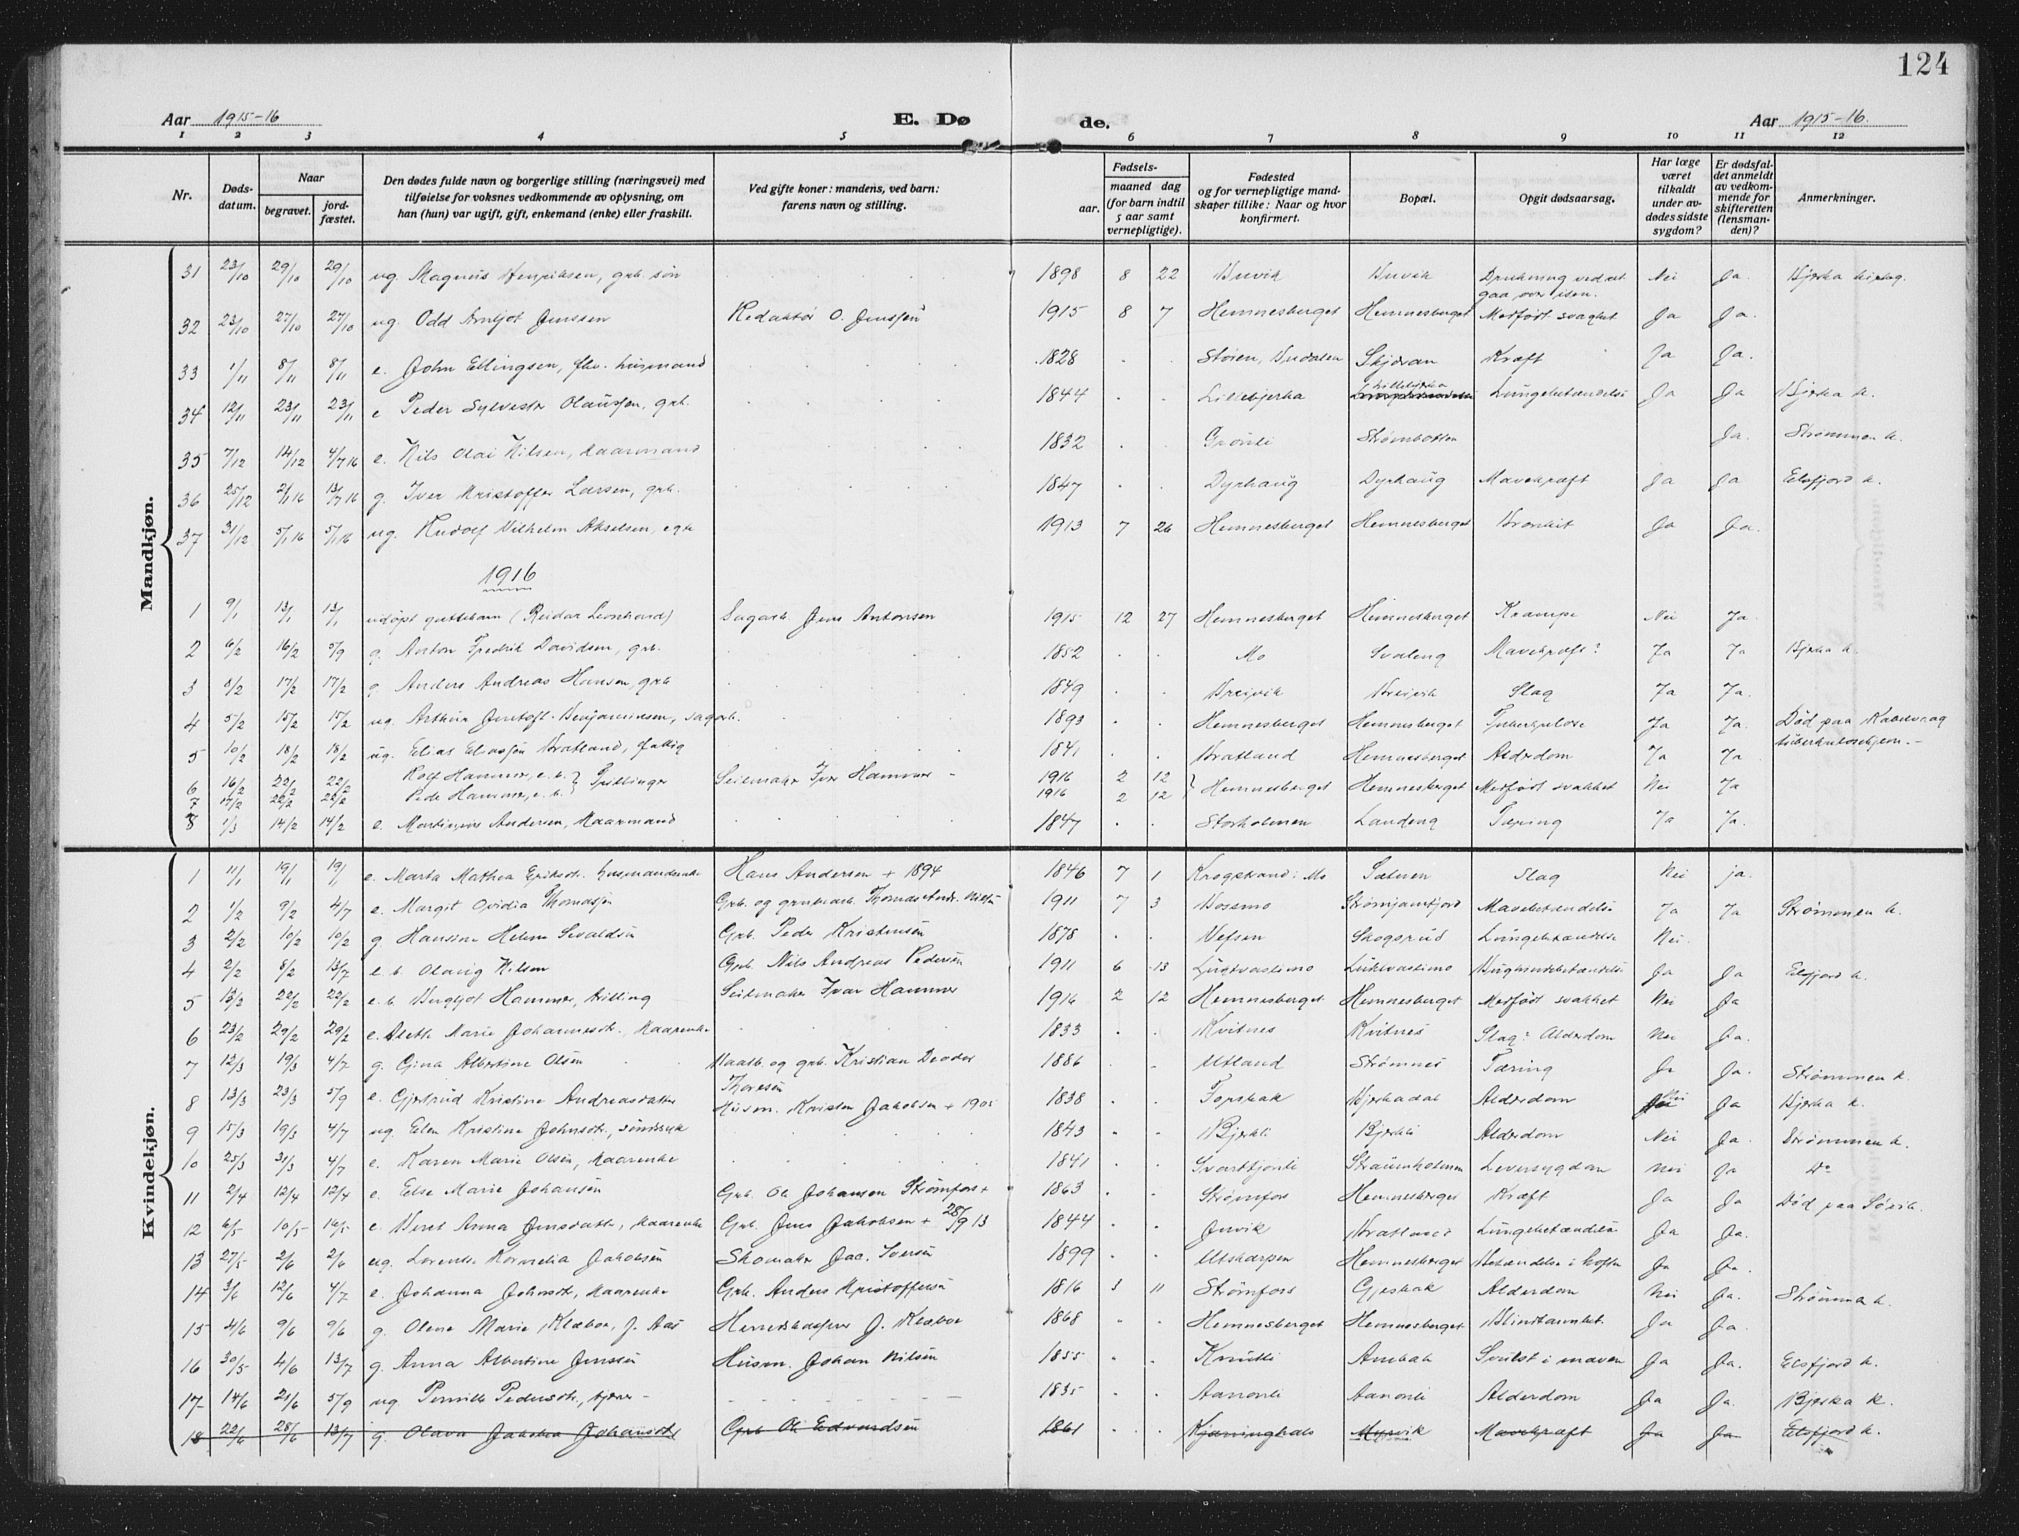 124
Aar 1915-16 E. Dø de. Aar 1915-16.
1 2 3 4 5 6 7 8 9 10 11 12
Nr. Døds-datum. Naar begravet. jord-fæstet. Den dødes fulde navn og borgerlige stilling (næringsvei) med tilføielse for voksnes vedkommende av oplysning, om han (hun) var ugift, gift, enkemand (enke) eller fraskilt. Ved gifte koner: mandens, ved barn: farens navn og stilling. Fødsels- aar. maaned dag (for barn indtil 5 aar samt vernepligtige). Fødested og for vernepligtige mand-skaper tillike: Naar og hvor konfirmert. Bopæl. Opgit dødsaarsag. Har læge været tilkaldt under av-dødes sidste sygdom? Er dødsfal-det anmeldt av vedkom-mende for skifteretten (lensman-den)? Anmerkninger.
Mandkjøn.
31 23/10 29/10 29/10 ug. Magnus Henriksen, grb. søn 1898 8 22 Drukning ved at gaa over isen. Nei Ja. Bjerka
32 23/10 27/10 27/10 ug. Odd Arnljot Jenssen Redaktør O. Jenssen 1915 8 7 Hemnesberget Hemnesberget Medfødt svaghet Ja Ja.
33 1/11 8/11 8/11 e. John Ellingsen, fhv. husmand 1828 Kræft Ja Ja.
34 12/11 23/11 23/11 e Peder Sylvester Olaussen, grb. 1844 Lillebjerka Lillebjerka Lungebetændelse Ja Ja Bjerka k.
35 7/12 14/12 4/7 16 e. Nils Olai Nilsen, kaarmand 1832 Grønli Strømbotten Ja. Strømmen k.
36 25/12 2/1 16 13/7 16 g. Iver Kristoffer Larsen, grb. 1847 Dyrhaug Dyrhaug Mavekræft Ja Ja Elsfjord k.
37 31/12 5/1 16 5/1 16 ug. Rudolf Vilhelm Akselsen, 1913 7 26 Hemnesberget Hemnesberget Bronkit Ja Ja.
1916
1 9/1 13/1 13/1 udøpt guttebarn (Reidar Leonhard) Sagarb. Jens Antonsen 1915 12 27 Hemnesberget Hemnesberget Krampe Nei Ja.
2 6/2 16/2 5/9 g. Anton Fredrik Davidsen, grb. 1852 Mo Svaleng Mavekræft? Ja Ja Bjerka k.
3 8/2 17/2 17/2 g. Anders Andreas Hansen, grb 1849 Breivik Breivik Slag Ja Ja.
4 5/2 15/2 15/2 ug. Arthur Jentoft Benjaminsen, sagarb. 1893 Hemnesberget Hemnesberget Tuberkulose Ja Ja. Død paa Kabelvaag tuberkulosehjem.
5 10/2 18/2 18/2 ug. Elias Eliassen Bratland, fattig 1841 Bratland Hemnesberget Alderdom Ja Ja.
6 16/2 22/2 22/2 Rolf Hammer, e. b. } Trillinger Seilmaker Iver Hammer 1916 2 12 } Hemnesberget Hemnesberget Medfødt svakhet Nei Ja
7 17/2 22/2 22/2 Peder Hammer, e. b. 1916 2 12
8 1/3 14/2 14/2 e. Andersen, kaarmand 1847 Storholmen Landeng Tæring Ja Ja.
Kvindekjøn.
1 11/1 19/1 19/1 e. Marta Mathea Eriksdt. husmandsenke Hans Andersen + 1894 1846 7 1 Krogstrand i Mo Sæteren Slag Nei ja.
2 1/2 9/2 4/7 e. Margit Ovidia Thomassen Grb. og grubearb. Thomas Andr. Nilsen 1911 7 3 Vossmo Mavebetændelse Ja Ja Strømmen k.
3 2/2 10/2 10/2 g. Hansine Helene Sivaldsen Grb. Peder Kristensen 1878 Vefsen Skogsrud Lungebetændelse Nei.
4 2/2 8/2 13/7 e. b. Olaug Nilsen Grb. Nils Andreas Pedersen 1911 6 13 Luktvastimo Bughindebetændelse Ja Ja Elsfjord k.
5 13/2 22/2 22/2 e. b Bergljot Hammer, trilling Seilmaker Ivar Hammer 1916 2 12 Hemnesberget Hemnesberget Medfødt svakhet Nei Ja
6 23/2 29/2 29/2 e. Aleth Marie Johannesdt. kaarenke 1833 Kvitnes Kvitnes Slag? Alderdom Nei Ja.
7 12/3 19/3 4/7 g. Gina Albertine Olsen og grb. Kristian Deodor Thoresen 1886 Utland Strømnes Tæring Ja Ja. Strømmen k.
8 13/3 23/3 5/9 e. Gjertrud Kristine Andreasdatter Husm. Kristen Jakobsen + 1901 1838 Forsbak Bjerkadal Alderdom Nei Ja Bjerka k.
9 15/3 19/3 4/7 ug. Elen Kristine Johnsdt., sindssyk 1843 Bjerkli Bjerkli Alderdom Nei Ja. Strømmen k.
10 25/3 31/3 4/7 e. Karen Marie Olsen, kaarenke 1841 Svarttjønli Strauenholmen Leversygdom Nei Ja Do
11 2/4 12/4 12/4 e. Else Marie Johansen Grb. Ole Johansen Strømfors + 1863 Strømfors Hemnesberget Kræft Ja Ja Død paa
12 6/5 10/5 16/5 e. Beret Anna Jensdatter, kaarenke Grb. Jens Jakobsen + 28/9 13 1844 Jnvik Bratland Lungebetændelse Ja Ja.
13 27/5 2/6 2/6 ug. Lorentse Kornelia Jakobsen Skomaker Jac. Iversen 1899 Utskarpen Hemnesberget Betændelse i hoften Ja Ja.
14 3/6 12/6 4/7 e. Johanna Johnsdt., kaarenke Grb. Anders Kristoffersen 1816 3 11 Strømfors Gjesbak Alderdom Nei Ja. Strømmen k.
15 4/6 9/6 9/6 g. Olene Marie Klæboe, f. Aas Herredskasserer J. Klæboe 1868 Hemnesberget Hemnesberget Blindtarmbet. Ja Ja.
16 30/5 4/6 13/7 g. Anna Albertine Jenssen Husm. Johan Nilsen 1855 Knutli Svulst i maven Ja Ja. Elsfjord k.
17 14/6 21/6 5/9 ug Pernille Pedersdt., 1835 Aanonli Aanonli Alderdom Ja Ja. Bjerka k.
18 22/6 28/6 13/7 g. Olava Jakobea Johansdt. Grb Ole Edvardsen 1861 Myrvik Mavekræft Ja Ja Elsfjord k.